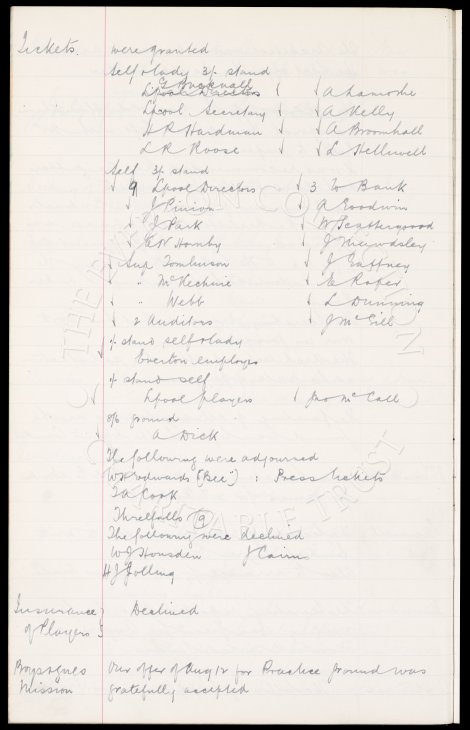 Tickets. were granted
Self & lady 3/- stand
G Bucknall
L'pool Directors A Lamothe
L'pool Secretary A Kelly
J R Hardman A Broomhall
L R Roose L Helliwell
Self 3/- stand
9 L'pool Directors 3 W Bank
J Pinion A Goodwin
J Park W Scattergood
A V Hornby J Mawdsley
Sup Tomlinson J Gaffney
" McKechnie E Roper
" Webb L Dunning
2 Auditors J McGill
/- stand self & lady
Everton employes
/- stand self
L'pool players Jno McCall
6/- ground
A Dick
The following were adjourned
W H Edwards ("Bee") : Press tickets
T A Cook
Threlfalls (9)
The following were declined
W J Housden J Cairns
H J Golling
Insurance of Players } Declined
Boys Ognes Our offer of Aug 12 for Practice ground was
Mission gratefully accepted